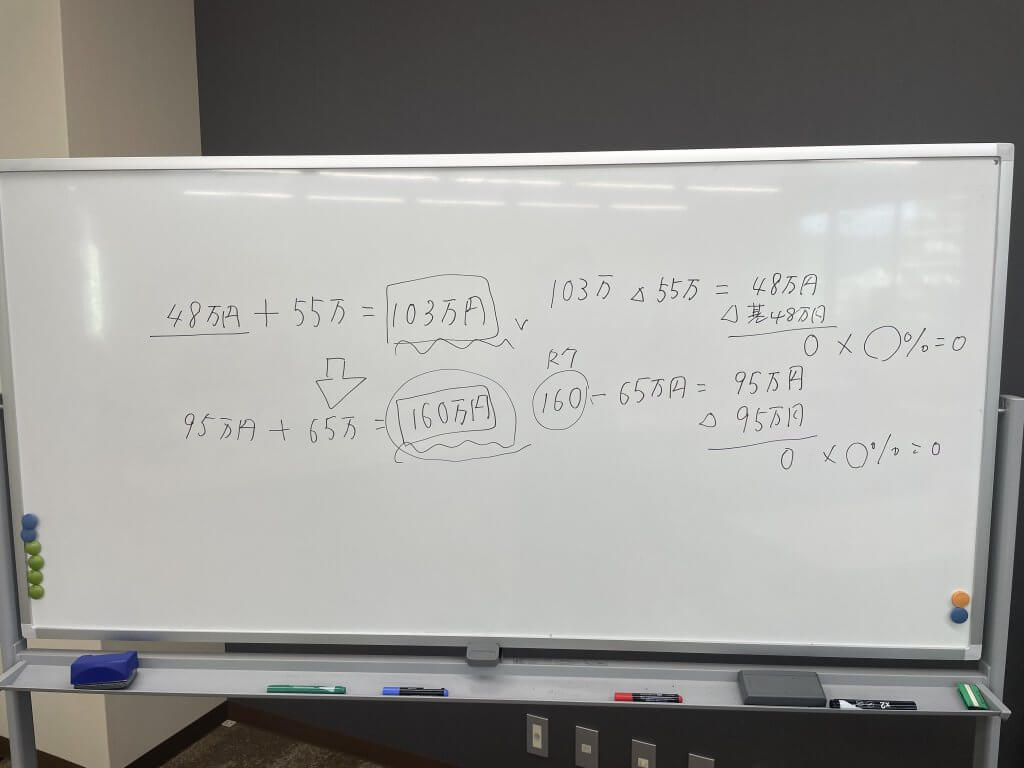 48万円 + 55万 = 103万円
95万円 + 65万 = 160万円
103万 △ 55万 = 48万円
△ 基48万円
0 × ○% = 0
R7
160 - 65万円 = 95万円
△ 95万円
0 × ○% = 0